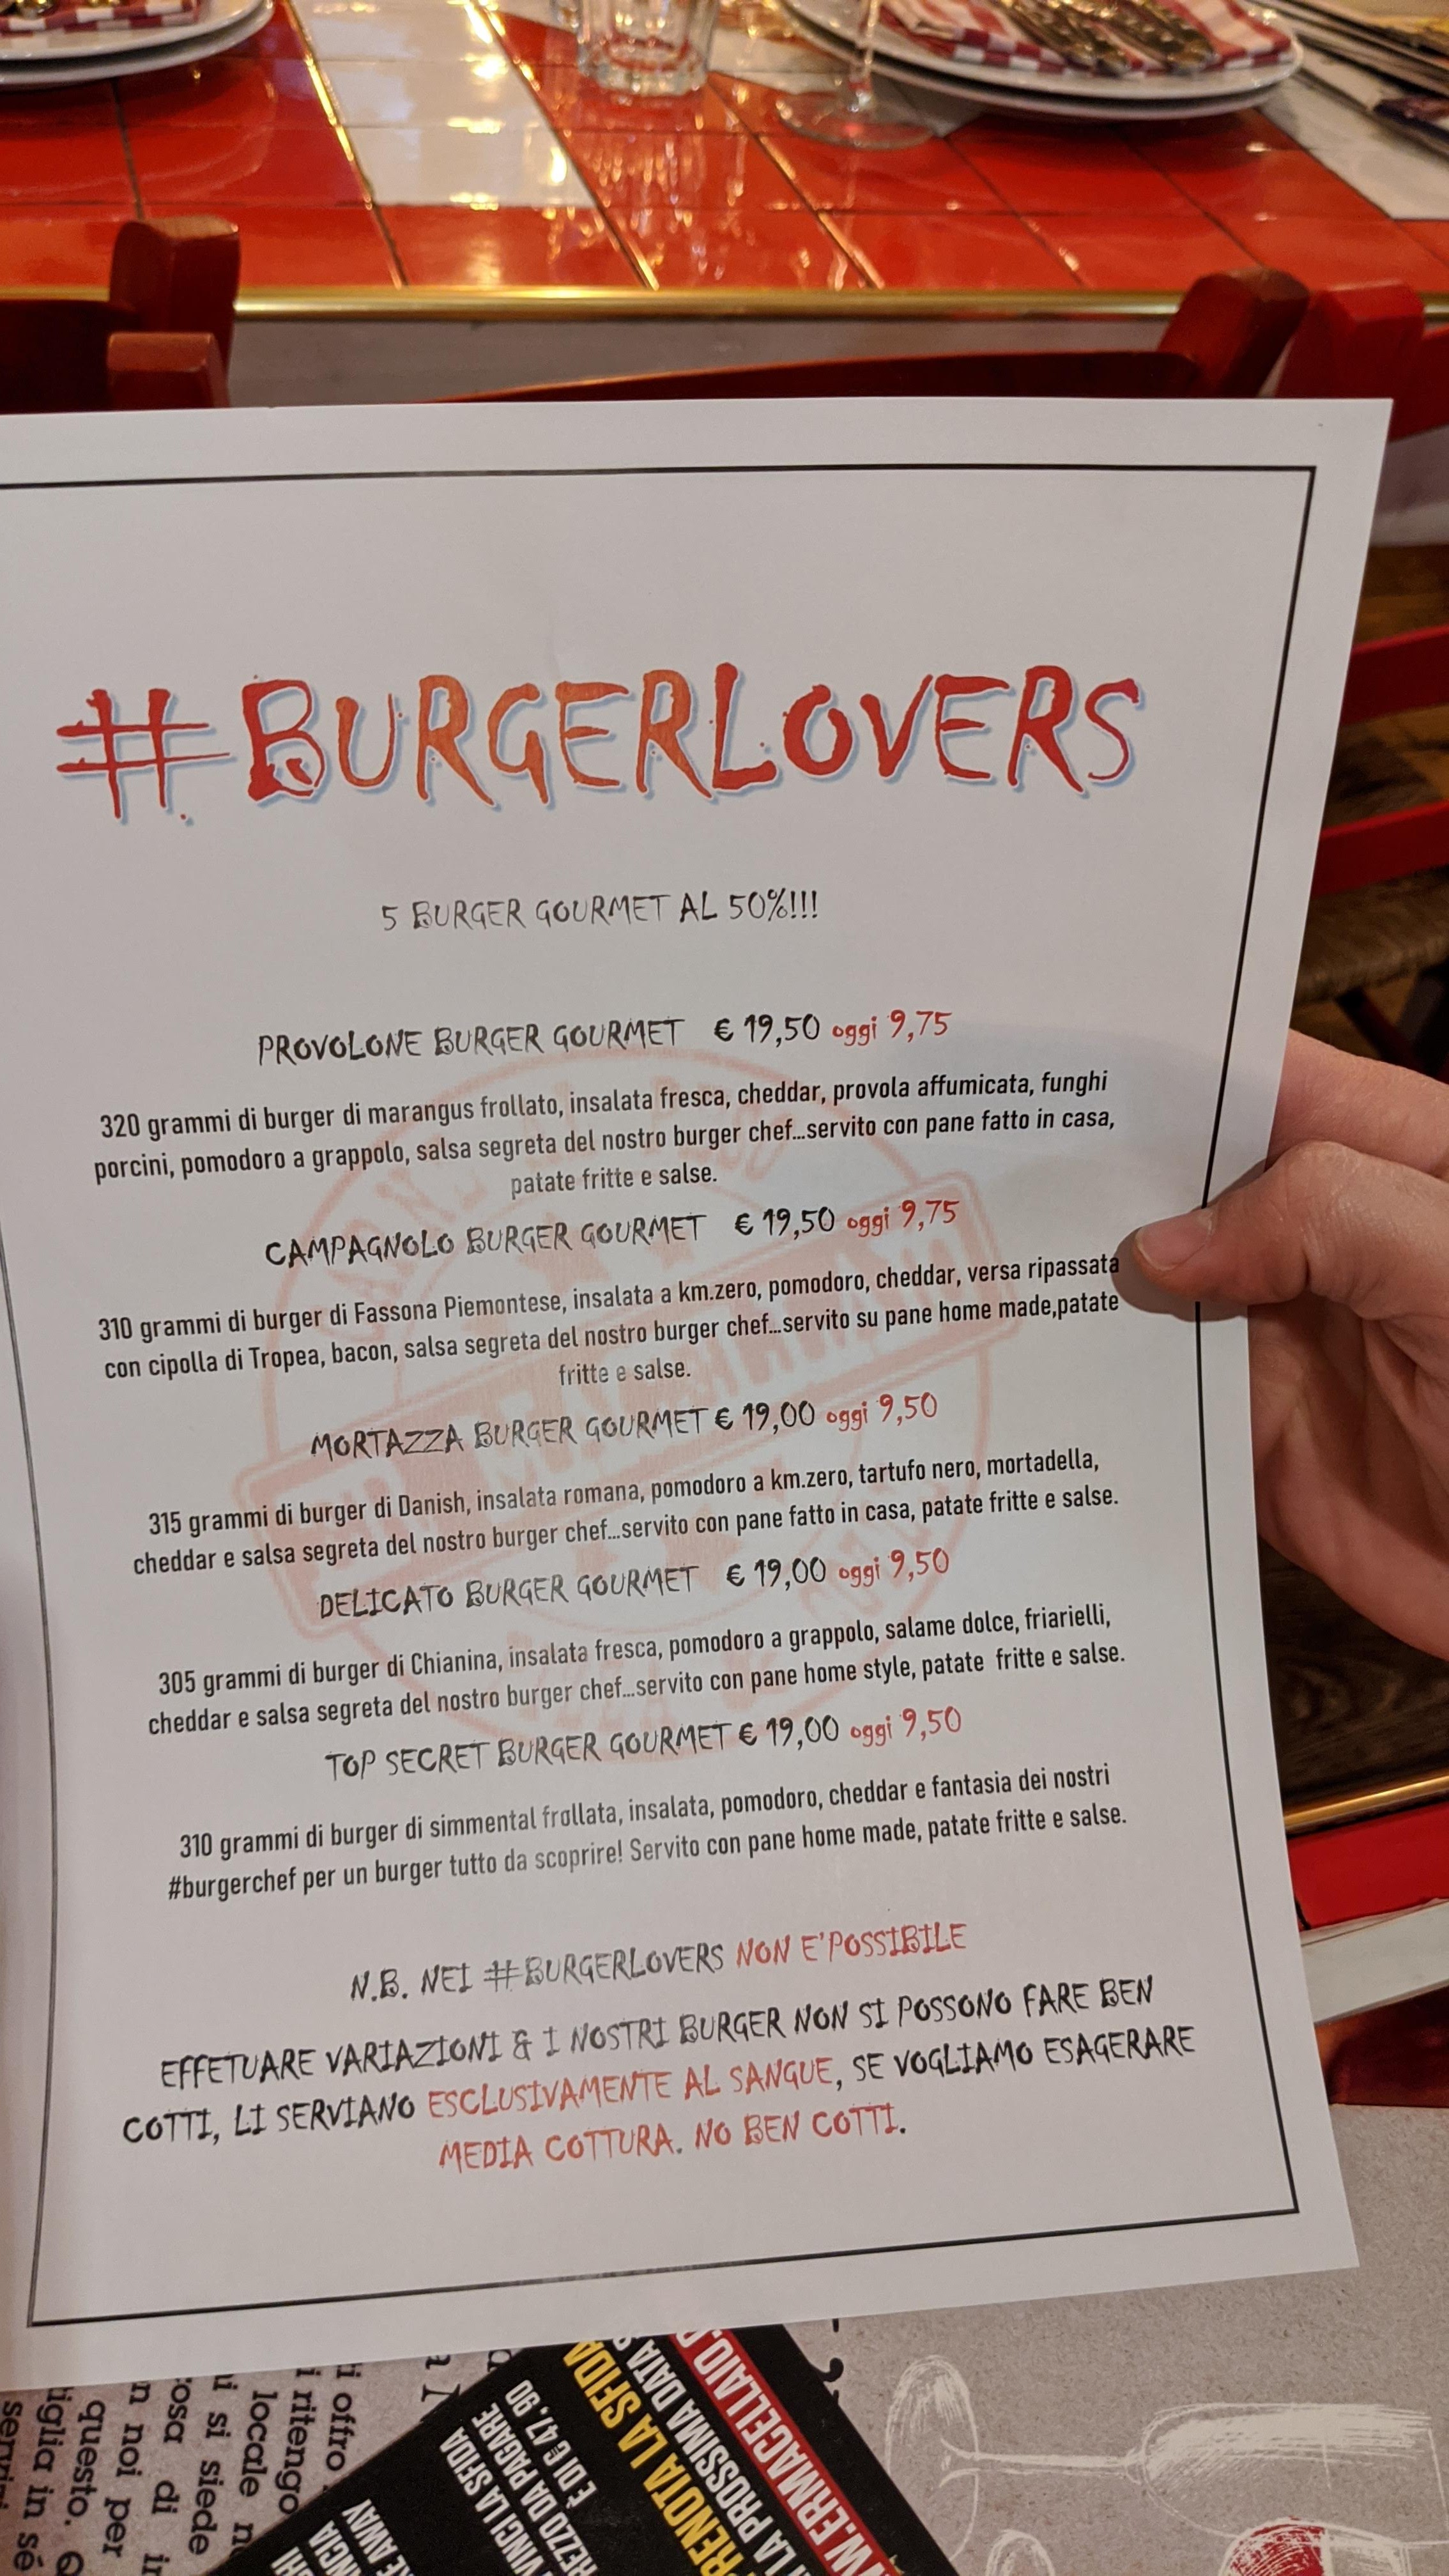 #BURGERLOVERS
5 BURGER GOURMET AL 50%!!!
PROVOLONE BURGER GOURMET € 19,50 oggi 9,75
320 grammi di burger di marangus frollato, insalata fresca, cheddar, provola affumicata, funghi
porcini, pomodoro a grappolo, salsa segreta del nostro burger chef...servito con pane fatto in casa,
patate fritte e salse.
CAMPAGNOLO BURGER GOURMET € 19,50 oggi 9,75
310 grammi di burger di Fassona Piemontese, insalata a km.zero, pomodoro, cheddar, versa ripassata
con cipolla di Tropea, bacon, salsa segreta del nostro burger chef...servito su pane home made,patate
fritte e salse.
MORTAZZA BURGER GOURMET € 19,00 oggi 9,50
315 grammi di burger di Danish, insalata romana, pomodoro a km.zero, tartufo nero, mortadella,
cheddar e salsa segreta del nostro burger chef...servito con pane fatto in casa, patate fritte e salse.
DELICATO BURGER GOURMET € 19,00 oggi 9,50
305 grammi di burger di Chianina, insalata fresca, pomodoro a grappolo, salame dolce, friarielli,
cheddar e salsa segreta del nostro burger chef...servito con pane home style, patate fritte e salse.
TOP SECRET BURGER GOURMET € 19,00 oggi 9,50
310 grammi di burger di simmental frollata, insalata, pomodoro, cheddar e fantasia dei nostri
#burgerchef per un burger tutto da scoprire! Servito con pane home made, patate fritte e salse.
N.B. NEI #BURGERLOVERS NON E'POSSIBILE
EFFETUARE VARIAZIONI & I NOSTRI BURGER NON SI POSSONO FARE BEN
COTTI, LI SERVIANO ESCLUSIVAMENTE AL SANGUE, SE VOGLIAMO ESAGERARE
MEDIA COTTURA. NO BEN COTTI.
VINCI LA SFIDA
DA PAGARE
È DI € 47,90
PRENOTA LA SFIDA
LA PROSSIMA DATA
ERMACELLAIO.
ti offro
i ritengo
locale
ui si siede
cosa di
n noi per
questo.
iglia in sé